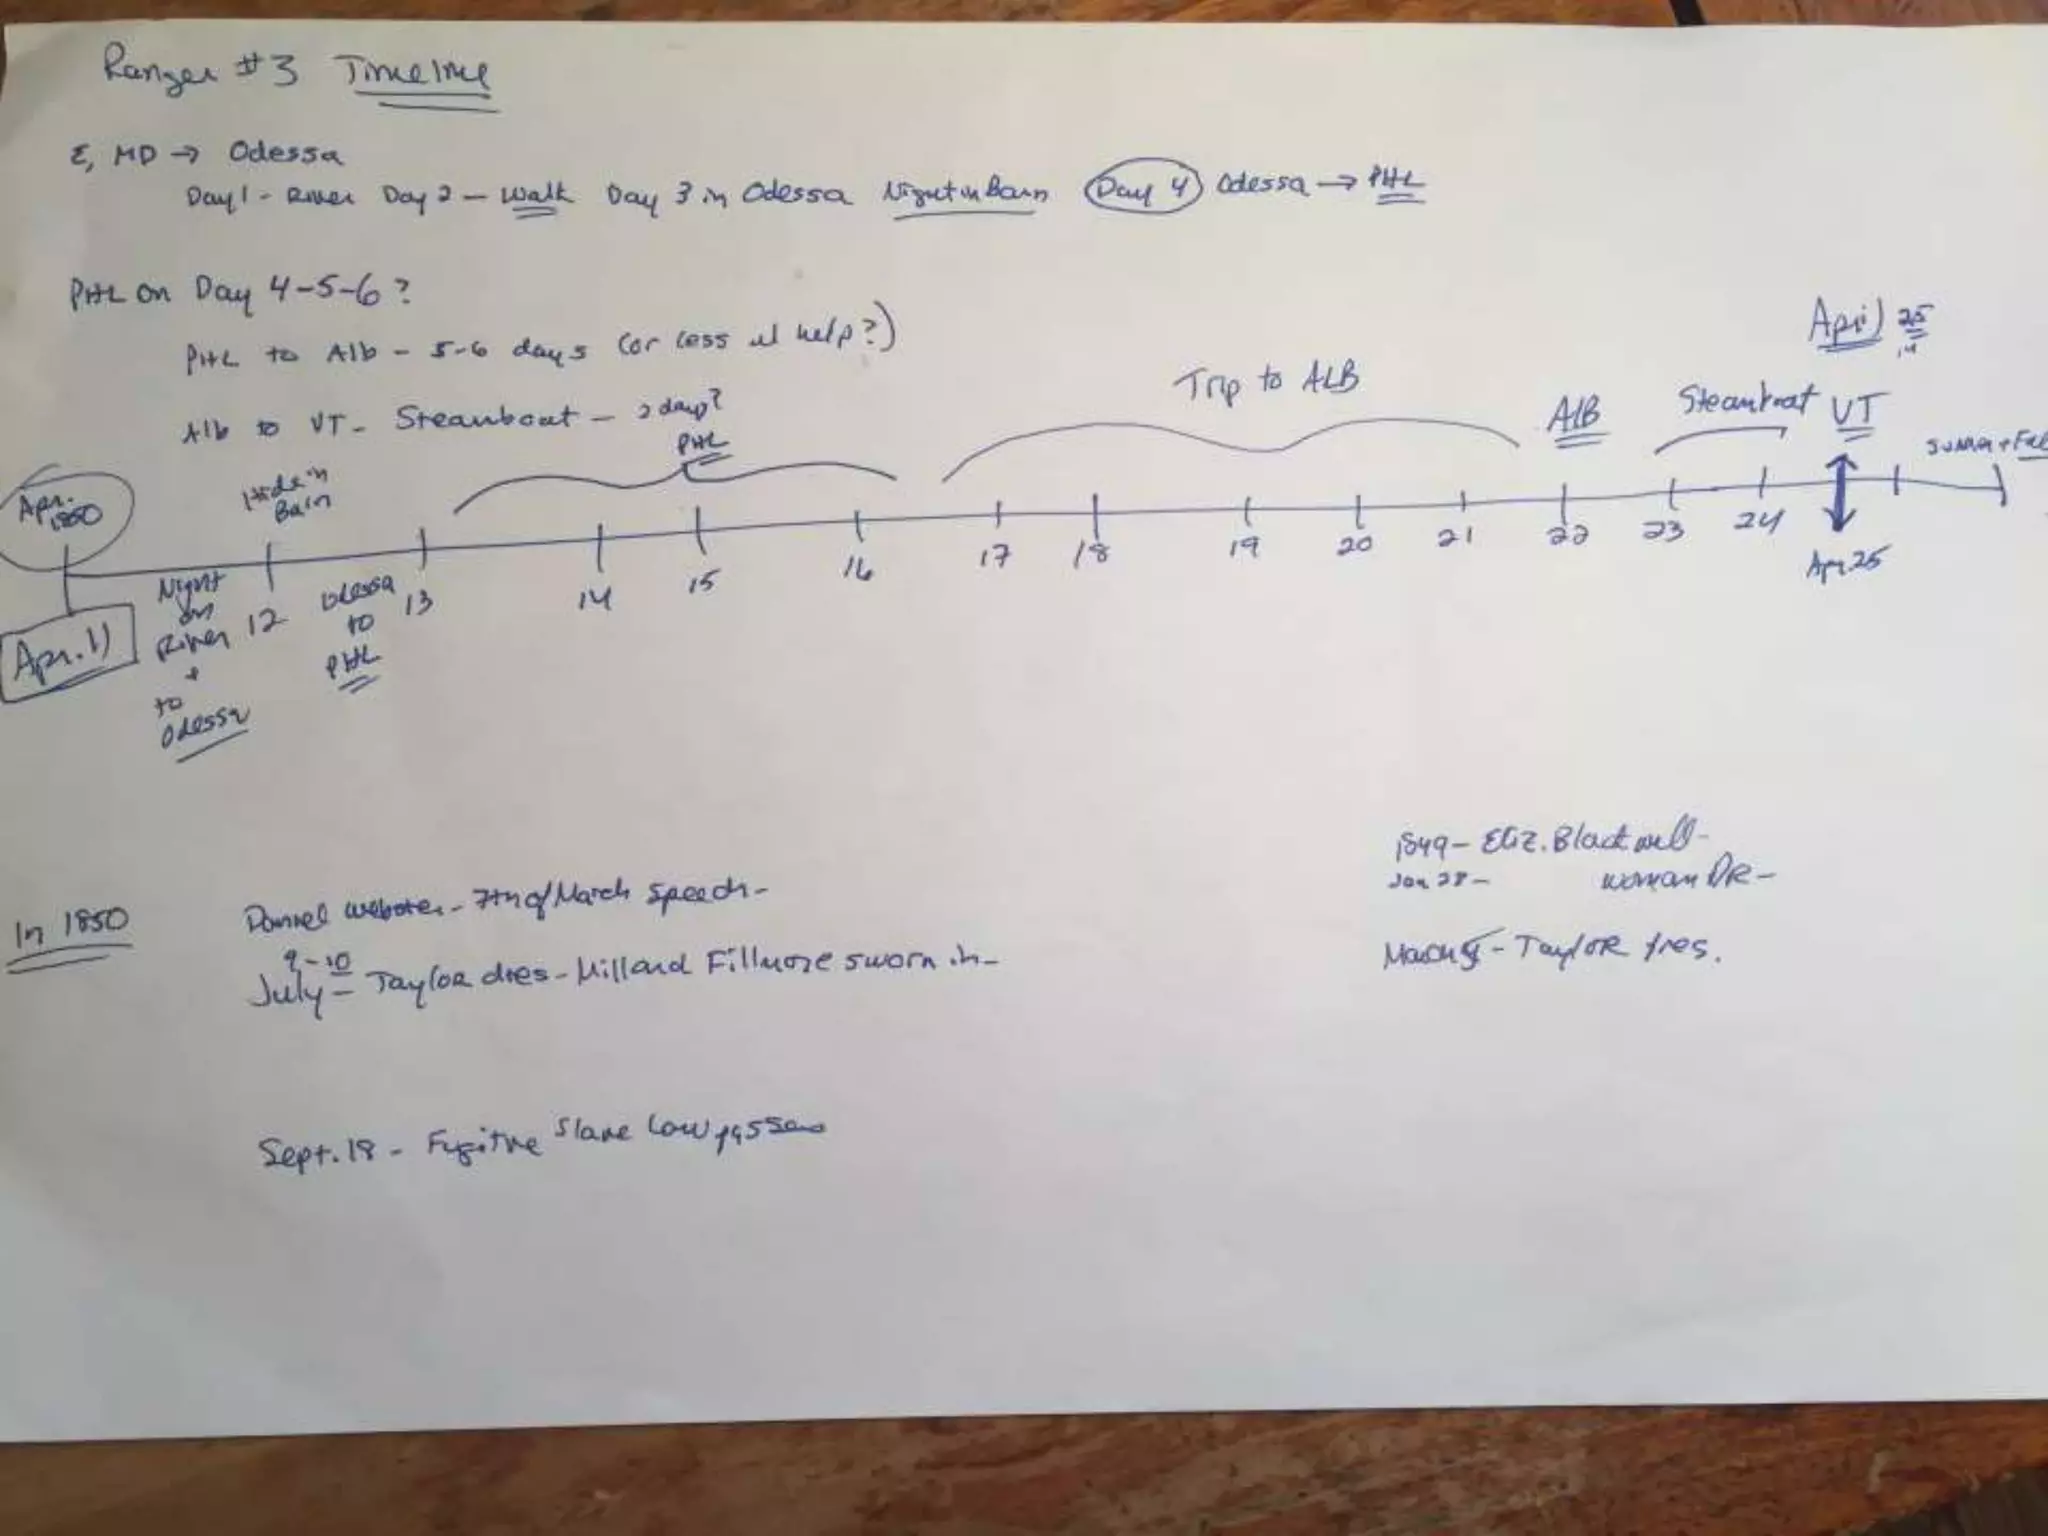 Ranger #3 Timeline
E, MD → Odessa
Day 1 - River Day 2 - Walk Day 3 in Odessa Night in Barn Day 4 Odessa → PHL
PHL on Day 4-5-6?
PHL to Alb - 5-6 days (or less w/ help?)
Alb to VT - Steamboat - 2 days?
April 25
Trip to ALB
ALB
Steamboat
VT
Summer + Fal
PHL
Hide in
Barn
Apr.
1850
12
13
14
15
16
17
18
19
20
21
22
23
24
Apr. 25
Apr. 11
Night
on
River
+
to
Odessa
Odessa
to
PHL
In 1850
Daniel Webster - 7th of March Speech -
July 9-10 - Taylor dies - Millard Fillmore sworn in -
Sept. 18 - Fugitive Slave Law passes
1849 - Eliz. Blackwell -
Jan 28 - woman DR -
March - Taylor Pres.